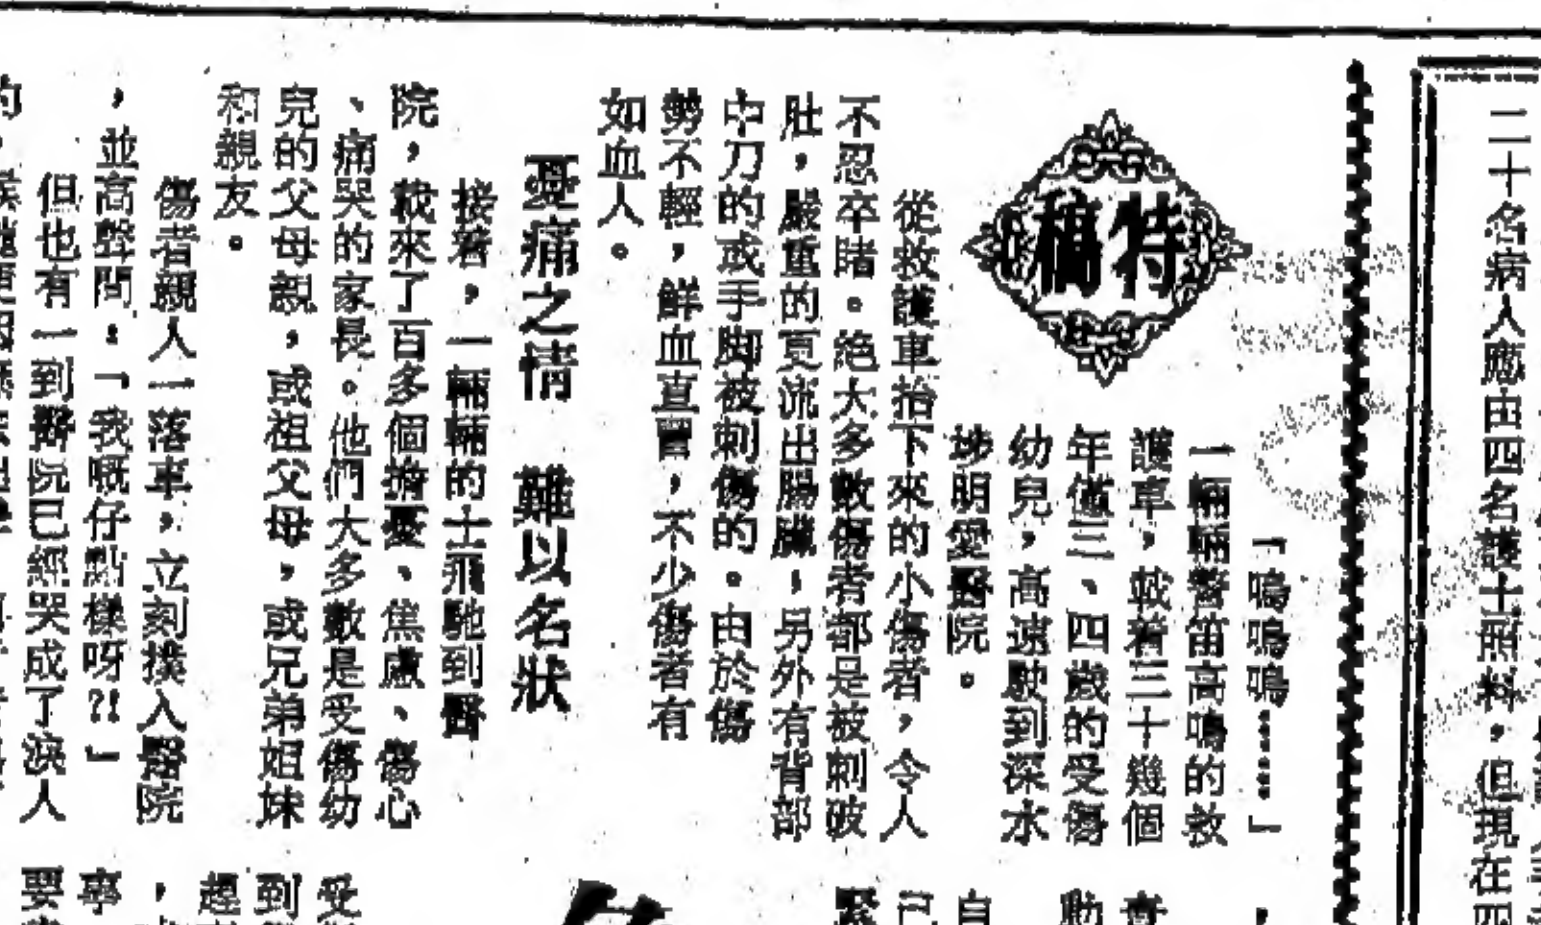 二十名病人應由四名護士照料，但現在四
特稿
「嗚嗚嗚⋯⋯」
一輛輛警笛高鳴的救
護車，載着三十幾個
年僅三、四歲的受傷
幼兒，高速駛到深水
埗明愛醫院。
從救護車抬下來的小傷者，令人
不忍卒睹。絶大多數傷者都是被刺破
肚，嚴重的更流出腸臟，另外有背部
中刀的或手脚被刺傷的。由於傷
勢不輕，鮮血直冒，不少傷者有
如血人。
憂痛之情　難以名狀
接着，一輛輛的士飛馳到醫
院，載來了百多個擔憂、焦慮、傷心
、痛哭的家長。他們大多數是受傷幼
兒的父母親，或祖父母，或兄弟姐妹
和親友。
傷者親人一落車，立刻撲入醫院
，並高聲問：「我嘅仔點樣呀?!」
但也有一到醫院已經哭成了淚人
的，
自
已
緊
受
到
趕
，
事
要